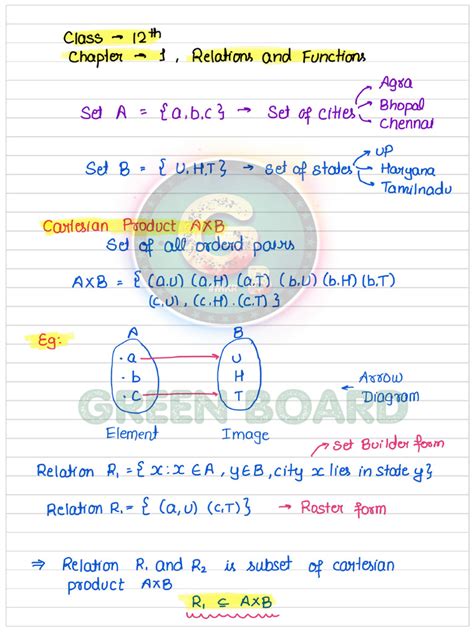 Class → 12th
Chapter → 1, Relations and Functions
Agra
Set A = {a,b,c} → Set of cities Bhopal
Chennai
UP
Set B = {U,H,T} → Set of states Haryana
Tamilnadu
Cartesian Product A×B
Set of all orderd pairs
A×B = {(a,U) (a,H) (a,T) (b,U) (b,H) (b,T)
(c,U), (c,H), (c,T)}
Eg: A B
. a U
. b H ← Arrow
. c T Diagram
GREEN BOARD
Element Image
Set Builder form
Relation R₁ = {x : x ∈ A, y ∈ B, city x lies in state y}
Relation R₁ = { (a,U) (c,T)} → Roster form
⇒ Relation R₁ and R₂ is subset of cartesian
product A×B
R₁ ⊆ A×B